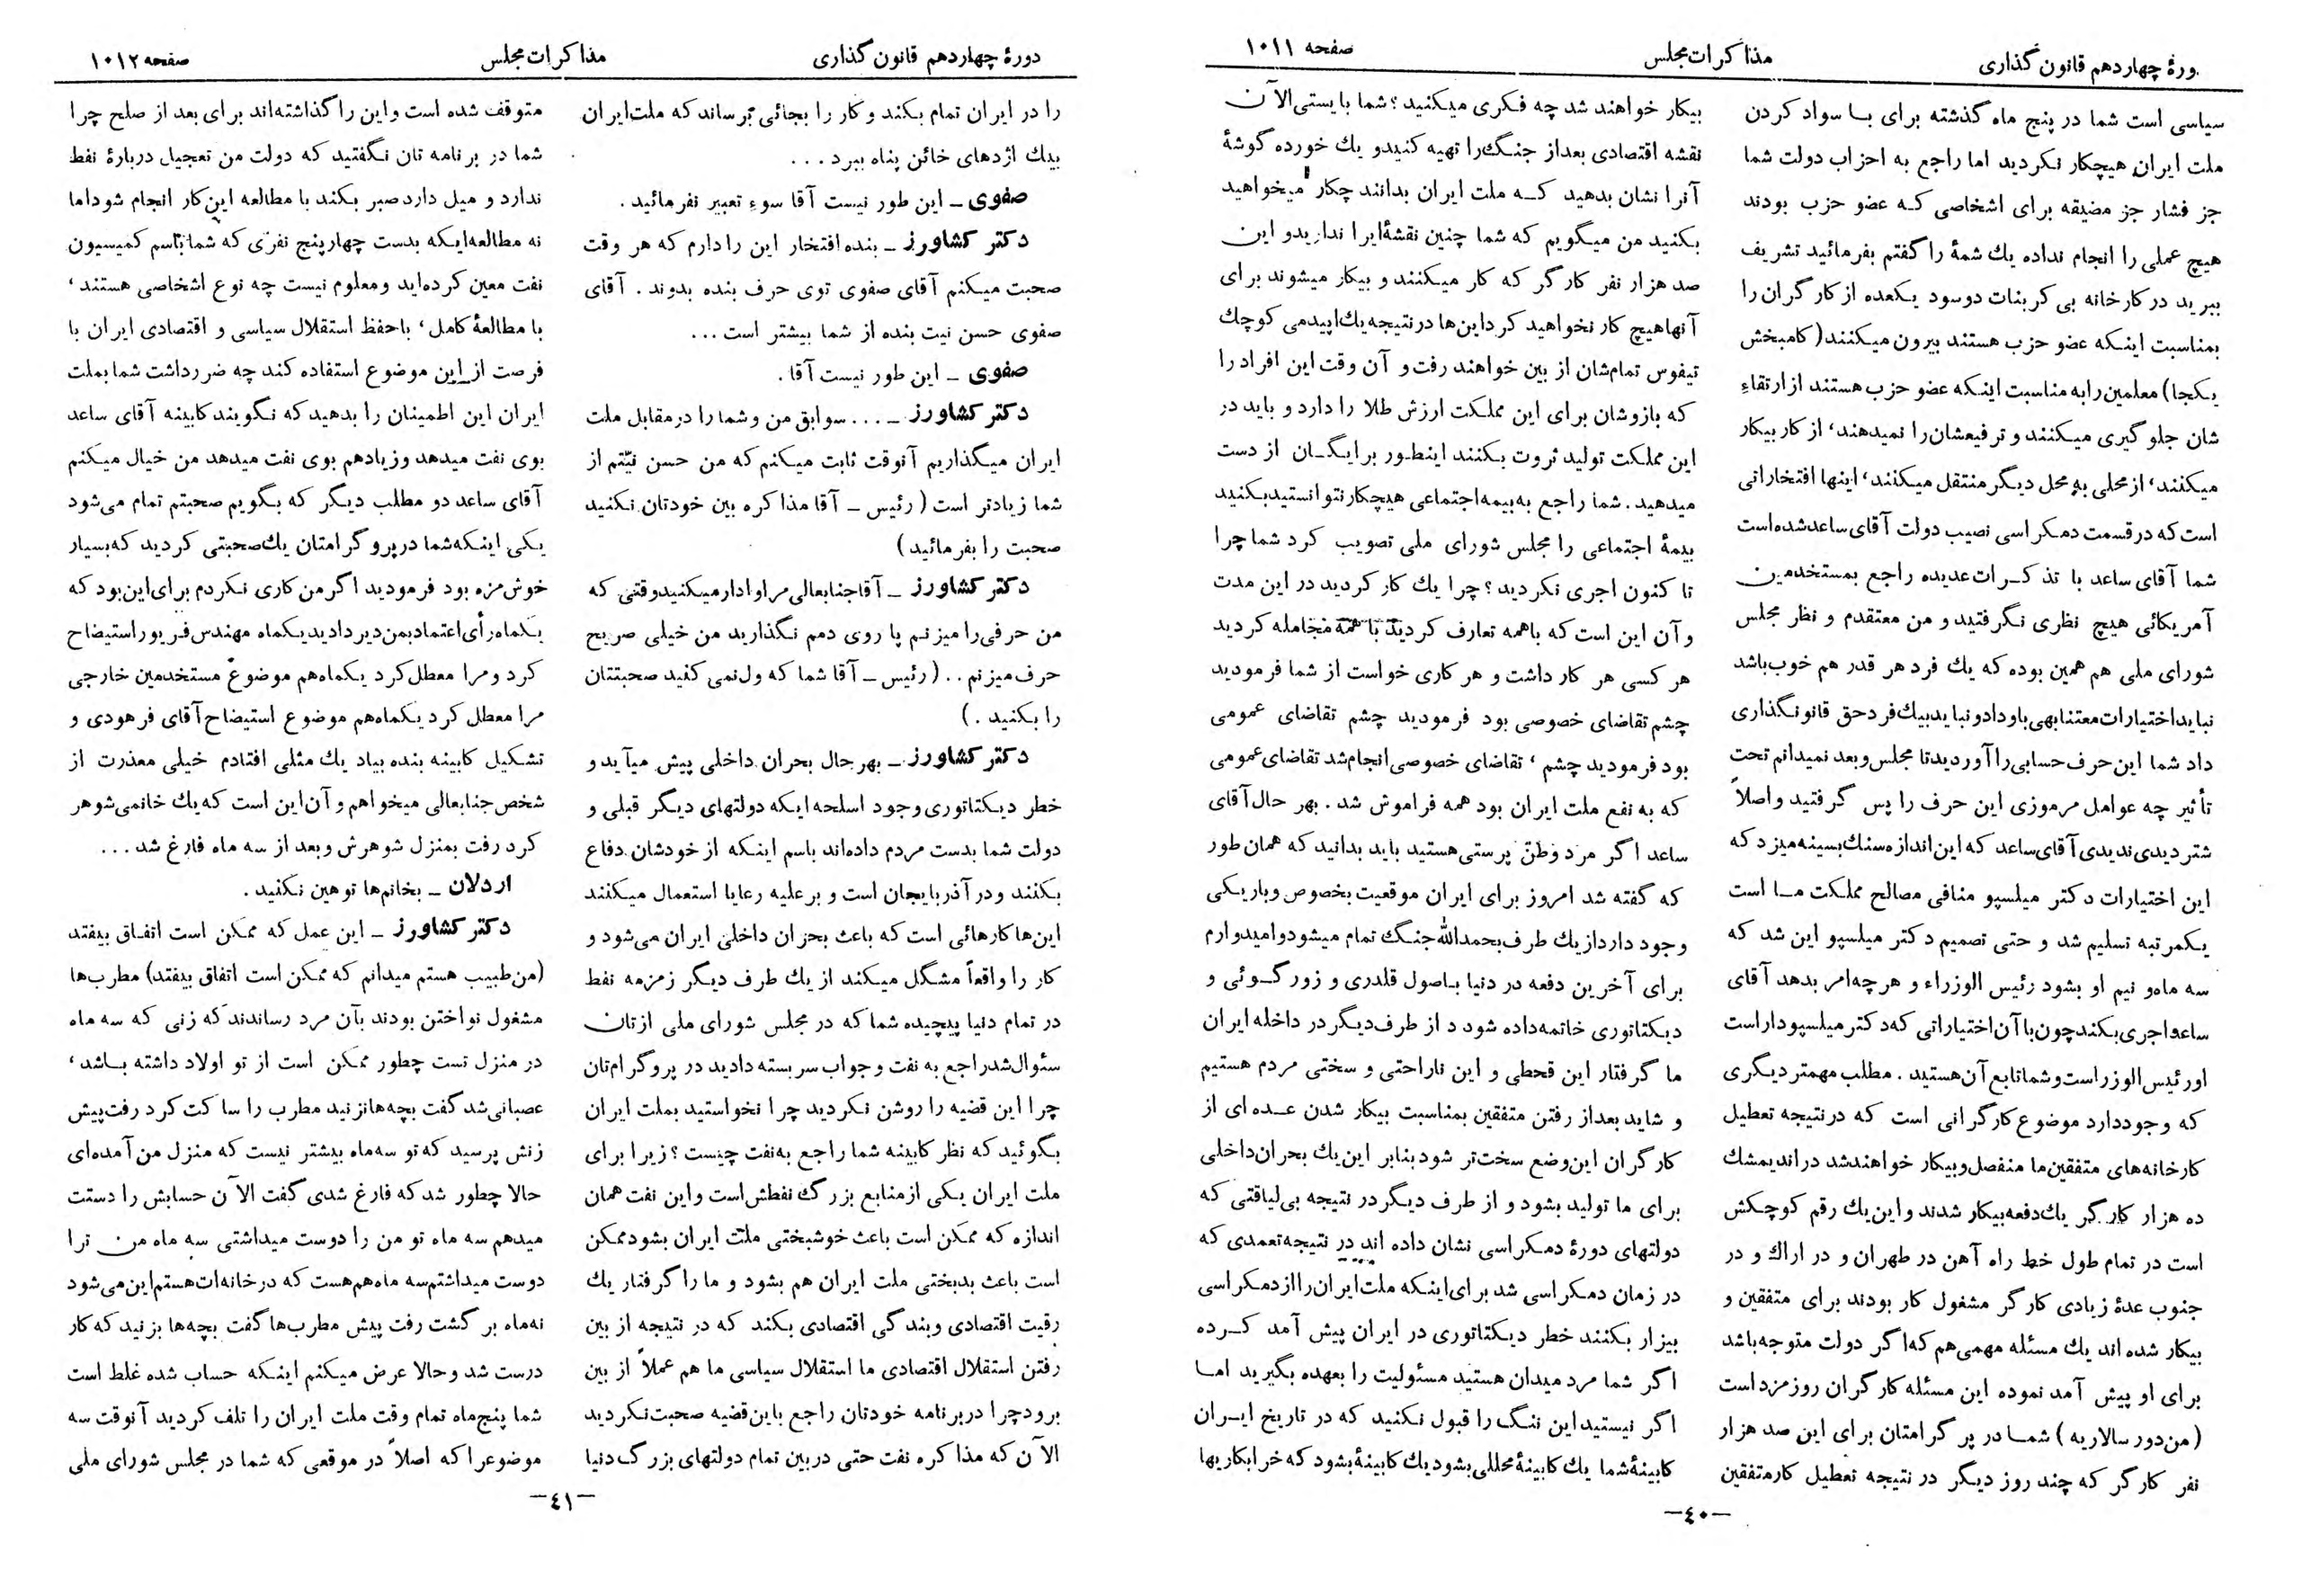 دورهٔ چهاردهم قانون گذاری
مذاکرات مجلس
صفحه ۱۰۱۱
سیاسی است شما در پنج ماه گذشته برای بـا سواد کردن
ملت ایران هیچکار نکردید اما راجع به احزاب دولت شما
جز فشار جز مضیقه برای اشخاصی کـه عضو حزب بودند
هیچ عملی را انجام نداده یك شمهٔ را گفتم بفرمائید تشریف
ببرید در کارخانه بی کربنات دوسود یکعده از کارگران را
بمناسبت اینکه عضو حزب هستند بیرون میکنند (کامبخش
یکجا) معلمین را به مناسبت اینکه عضو حزب هستند از ارتقاء
شان جلوگیری میکنند و ترفیعشان را نمیدهند، از کار بیکار
میکنند، از محلی به محل دیگر منتقل میکنند، اینها افتخاراتی
است که در قسمت دمکراسی نصیب دولت آقای ساعد شده است
شما آقای ساعد با تذکـرات عدیده راجع بمستخدمین
آمریکائی هیچ نظری نگرفتید و من معتقدم و نظر مجلس
شورای ملی هم همین بوده که یك فرد هر قدر هم خوب باشد
نباید اختیارات معتنابهی باو داد و نباید بیك فرد حق قانونگذاری
داد شما این حرف حسابی را آوردید تا مجلس و بعد نمیدانم تحت
تأثیر چه عوامل مرموزی این حرف را پس گرفتید و اصلاً
شتر دیدی ندیدی آقای ساعد که این اندازه سنك بسینه میزد که
این اختیارات دکتر میلسپو منافی مصالح مملکت مـا است
یکمرتبه تسلیم شد و حتی تصمیم دکتر میلسپو این شد که
سه ماه و نیم او بشود رئیس الوزراء و هر چه امر بدهد آقای
ساعد اجری بکند چون با آن اختیاراتی که دکتر میلسپو دار است
او رئیس الوزر است و شما تابع آن هستید. مطلب مهمتر دیگری
که وجود دارد موضوع کارگرانی است که در نتیجه تعطیل
کارخانه‌های متفقین ما منفصل و بیکار خواهند شد در اندیمشك
ده هزار کارگر یك دفعه بیکار شدند و این یك رقم کوچکش
است در تمام طول خط راه آهن در طهران و در اراك و در
جنوب عدهٔ زیادی کارگر مشغول کار بودند برای متفقین و
بیکار شده اند یك مسئله مهمی هم که اگر دولت متوجه باشد
برای او پیش آمد نموده این مسئله کارگران روزمزد است
(من دور سالاریه) شمـا در پرگرامتان برای این صد هزار
نفر کارگر که چند روز دیگر در نتیجه تعطیل کار متفقین
بیکار خواهند شد چه فکری میکنید؟ شما بایستی الآن
نقشه اقتصادی بعد از جنگ را تهیه کنید و یك خورده گوشهٔ
آنرا نشان بدهید کـه ملت ایران بدانند چکار میخواهید
بکنید من میگویم که شما چنین نقشهٔ ایرا ندارید و این
صد هزار نفر کارگر که کار میکنند و بیکار میشوند برای
آنها هیچ کار نخواهید کرد این‌ها در نتیجه یك اپیدمی کوچك
تیفوس تمامشان از بین خواهند رفت و آن وقت این افراد را
که بازوشان برای این مملکت ارزش طلا را دارد و باید در
این مملکت تولید ثروت بکنند اینطور برایگـان از دست
میدهید. شما راجع به بیمه اجتماعی هیچکار نتوانستید بکنید
بیمهٔ اجتماعی را مجلس شورای ملی تصویب کرد شما چرا
تا کنون اجری نکردید؟ چرا یك کار کردید در این مدت
و آن این است که با همه تعارف کردید با همه مجامله کردید
هر کسی هر کار داشت و هر کاری خواست از شما فرمودید
چشم تقاضای خصوصی بود فرمودید چشم تقاضای عمومی
بود فرمودید چشم، تقاضای خصوصی انجام شد تقاضای عمومی
که به نفع ملت ایران بود همه فراموش شد. بهر حال آقای
ساعد اگر مرد وطن پرستی هستید باید بدانید که همان طور
که گفته شد امروز برای ایران موقعیت بخصوص و باریکی
وجود دارد از یك طرف بحمدالله جنگ تمام میشود و امیدوارم
برای آخرین دفعه در دنیا بـاصول قلدری و زورگـوئی و
دیکتاتوری خاتمه داده شود و از طرف دیگر در داخله ایران
ما گرفتار این قحطی و این ناراحتی و سختی مردم هستیم
و شاید بعد از رفتن متفقین بمناسبت بیکار شدن عـده ای از
کارگران این وضع سخت‌تر شود بنابر این یك بحران داخلی
برای ما تولید بشود و از طرف دیگر در نتیجه بی لیاقتی که
دولتهای دورهٔ دمکراسی نشان داده اند در نتیجه تعمدی که
در زمان دمکراسی شد برای اینکه ملت ایران را از دمکراسی
بیزار بکنند خطر دیکتاتوری در ایران پیش آمد کـرده
اگر شما مرد میدان هستید مسئولیت را بعهده بگیرید امـا
اگر نیستید این ننگ را قبول نکنید که در تاریخ ایـران
کابینهٔ شما یك کابینهٔ محللی بشود یك کابینهٔ بشود که خرابکاریها
ـ٤٠ـ
دورهٔ چهاردهم قانون گذاری
مذاکرات مجلس
صفحه ۱۰۱۲
را در ایران تمام بکند و کار را بجائی برساند که ملت ایران
بیك اژدهای خائن پناه ببرد . . .
صفوی ـ این طور نیست آقا سوء تعبیر نفرمائید.
دکتر کشاورز ـ بنده افتخار این را دارم که هر وقت
صحبت میکنم آقای صفوی توی حرف بنده بدوند. آقای
صفوی حسن نیت بنده از شما بیشتر است . . .
صفوی ـ این طور نیست آقا.
دکتر کشاورز ـ . . . سوابق من و شما را در مقابل ملت
ایران میگذاریم آنوقت ثابت میکنم که من حسن نیتم از
شما زیادتر است (رئیس ـ آقا مذاکره بین خودتان نکنید
صحبت را بفرمائید)
دکتر کشاورز ـ آقا جنابعالی مرا وادار میکنید وقتی که
من حرفی را میزنم پا روی دمم نگذارید من خیلی صریح
حرف میزنم . . (رئیس ـ آقا شما که ول نمی کنید صحبتتان
را بکنید.)
دکتر کشاورز ـ بهر حال بحران داخلی پیش میآید و
خطر دیکتاتوری وجود اسلحه ایکه دولتهای دیگر قبلی و
دولت شما بدست مردم داده‌اند باسم اینکه از خودشان دفاع
بکنند و در آذربایجان است و بر علیه رعایا استعمال میکنند
این‌ها کارهائی است که باعث بحران داخلی ایران می‌شود و
کار را واقعاً مشگل میکند از یك طرف دیگر زمزمه نفط
در تمام دنیا پیچیده شما که در مجلس شورای ملی ازتان
سئوال شد راجع به نفت و جواب سربسته دادید در پروگرام‌تان
چرا این قضیه را روشن نکردید چرا نخواستید بملت ایران
بگوئید که نظر کابینه شما راجع به نفت چیست؟ زیرا برای
ملت ایران یکی از منابع بزرگ نفطش است و این نفت همان
اندازه که ممکن است باعث خوشبختی ملت ایران بشود ممکن
است باعث بدبختی ملت ایران هم بشود و ما را گرفتار یك
رقیت اقتصادی و بندگی اقتصادی بکند که در نتیجه از بین
رفتن استقلال اقتصادی ما استقلال سیاسی ما هم عملاً از بین
برود چرا در برنامه خودتان راجع باین قضیه صحبت نکردید
الآن که مذاکره نفت حتی در بین تمام دولتهای بزرگ دنیا
متوقف شده است و این را گذاشته‌اند برای بعد از صلح چرا
شما در برنامه تان نگفتید که دولت من تعجیل دربارهٔ نفط
ندارد و میل دارد صبر بکند با مطالعه این کار انجام شود اما
نه مطالعه ایکه بدست چهار پنج نفری که شما باسم کمیسیون
نفت معین کرده‌اید و معلوم نیست چه نوع اشخاصی هستند،
با مطالعهٔ کامل، با حفظ استقلال سیاسی و اقتصادی ایران با
فرصت از این موضوع استفاده کند چه ضرر داشت شما بملت
ایران این اطمینان را بدهید که نگویند کابینه آقای ساعد
بوی نفت میدهد و زیادهم بوی نفت میدهد من خیال میکنم
آقای ساعد دو مطلب دیگر که بگویم صحبتم تمام می‌شود
یکی اینکه شما در پروگرامتان یك صحبتی کردید که بسیار
خوش مزه بود فرمودید اگر من کاری نکردم برای این بود که
یکماه رأی اعتماد بمن دیر دادید یکماه مهندس فریور استیضاح
کرد و مرا معطل کرد یکماه هم موضوع مستخدمین خارجی
مرا معطل کرد یکماه هم موضوع استیضاح آقای فرهودی و
تشکیل کابینه بنده بیاد یك مثلی افتادم خیلی معذرت از
شخص جنابعالی میخواهم و آن این است که یك خانمی شوهر
کرد رفت بمنزل شوهرش و بعد از سه ماه فارغ شد . . .
اردلان ـ بخانم‌ها توهین نکنید.
دکتر کشاورز ـ این عمل که ممکن است اتفـاق بیفتد
(من طبیب هستم میدانم که ممکن است اتفاق بیفتد) مطرب‌ها
مشغول نواختن بودند بآن مرد رساندند که زنی که سه ماه
در منزل تست چطور ممکن است از تو اولاد داشته بـاشد،
عصبانی شد گفت بچه‌ها نزنید مطرب را ساکت کرد رفت پیش
زنش پرسید که تو سه ماه بیشتر نیست که منزل من آمده‌ای
حالا چطور شد که فارغ شدی گفت الآن حسابش را دستت
میدهم سه ماه تو من را دوست میداشتی سه ماه من ترا
دوست میداشتم سه ماه هم هست که در خانه‌ات هستم این می‌شود
نه ماه بر گشت رفت پیش مطرب‌ها گفت بچه‌ها بزنید که کار
درست شد و حالا عرض میکنم اینکه حساب شده غلط است
شما پنج‌ماه تمام وقت ملت ایران را تلف کردید آنوقت سه
موضوعرا که اصلاً در موقعی که شما در مجلس شورای ملی
ـ٤١ـ